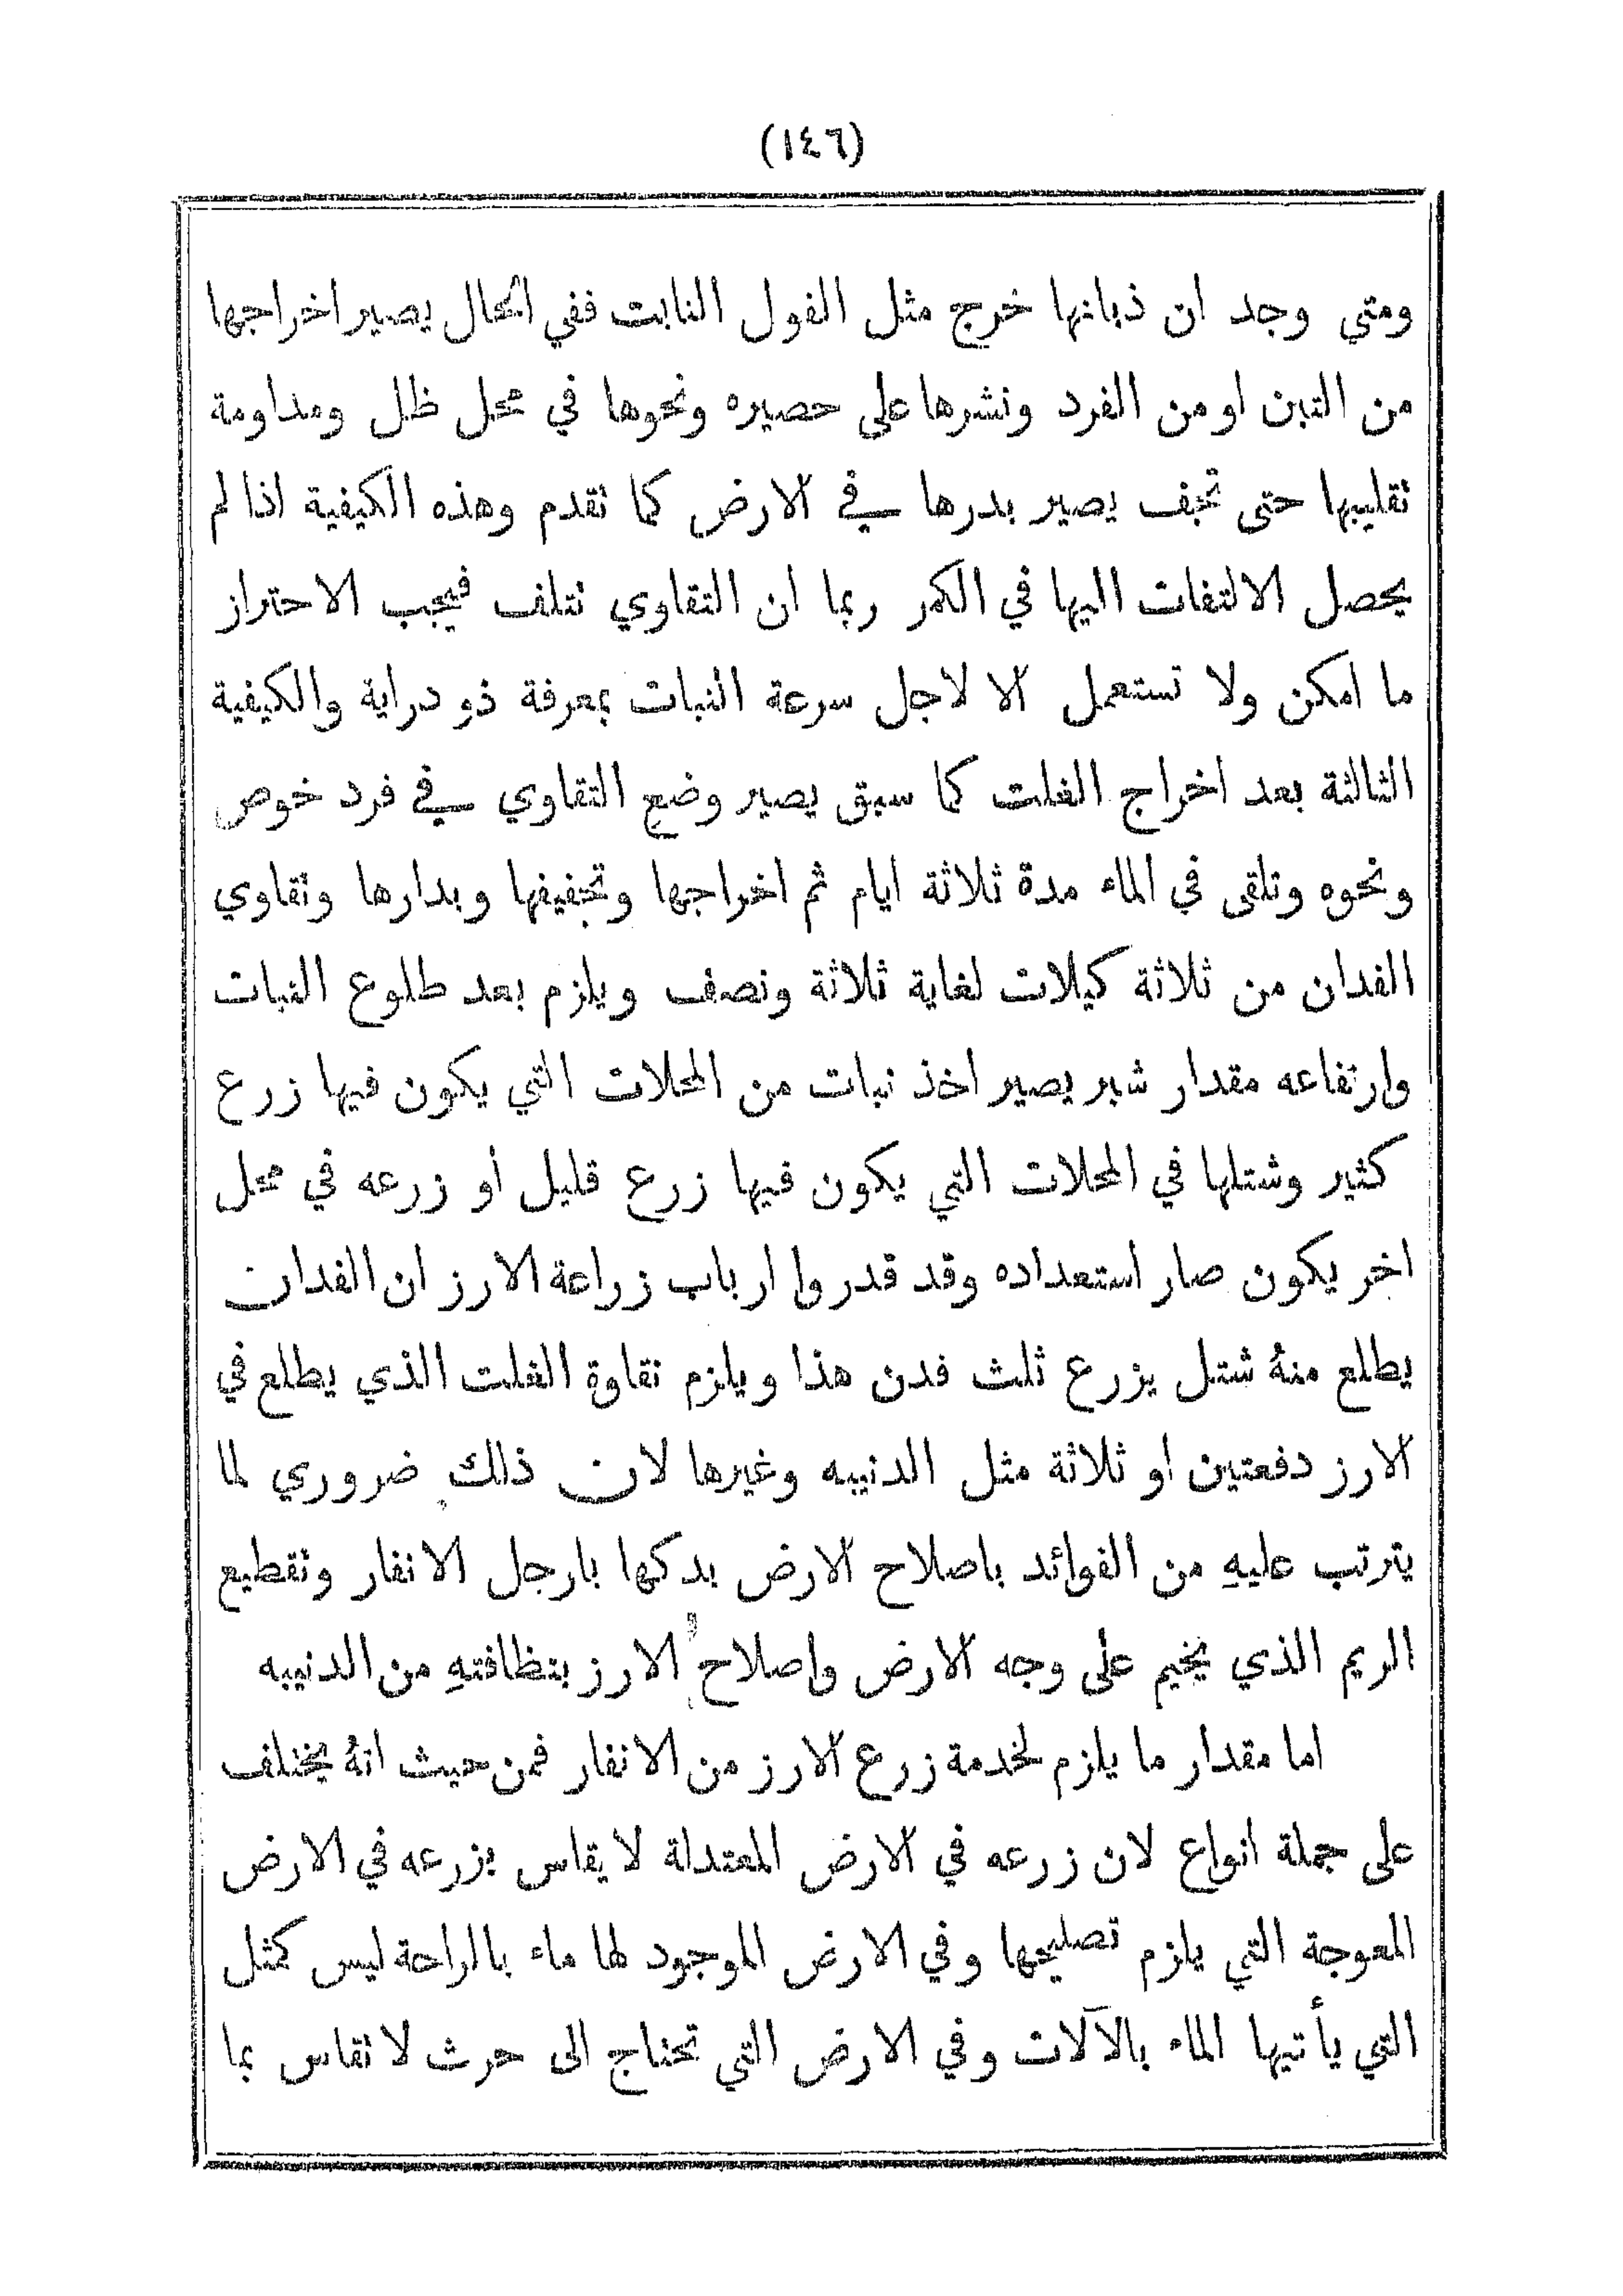 (١٤٦)
ومتى وجد ان ذبانها خرج مثل الفول النابت ففي الحال يصير اخراجها
من التبن او من الفرد ونشرها على حصيره ونحوها في محل ظل ومداومة
نقليبها حتى تجف يصير بدرها في الارض كما نقدم وهذه الكيفية اذا لم
يحصل الالتفات اليها في الكمر ربما ان التقاوي نتلف فيجب الاحتراز
ما امكن ولا تستعمل الا لاجل سرعة النبات بمعرفة ذو دراية والكيفية
الثالثة بعد اخراج الغلت كما سبق يصير وضع التقاوي في فرد خوص
ونحوه وتلقى في الماء مدة ثلاثة ايام ثم اخراجها وتجفيفها وبدارها ونقاوي
الفدان من ثلاثة كيلات لغاية ثلاثة ونصف ويلزم بعد طلوع النبات
وارتفاعه مقدار شبر يصير اخذ نبات من المحلات التي يكون فيها زرع
كثير وشتلها في المحلات التي يكون فيها زرع قليل أو زرعه في محل
اخر يكون صار استعداده وقد قدروا ارباب زراعة الارز ان الفدان
يطلع منهُ شتل يزرع ثلث فدن هذا ويلزم نقاوة الغلت الذي يطلع في
الارز دفعتين او ثلاثة مثل الدنيبه وغيرها لان ذلك ضروري لما
يترتب عليهِ من الفوائد باصلاح الارض بدكها بارجل الانفار ونقطيع
الريم الذي يخيم على وجه الارض واصلاح الارز بنظافتهِ من الدنيبه
اما مقدار ما يلزم لخدمة زرع الارز من الانفار فمن حيث انهُ يختلف
على جملة انواع لان زرعه في الارض المعتدلة لا يقاس بزرعه في الارض
المعوجة التي يلزم تصليحها وفي الارض الموجود لها ماء بالراحة ليس كمثل
التي يأتيها الماء بالآلات وفي الارض التي تحتاج الى حرث لا نقاس بما